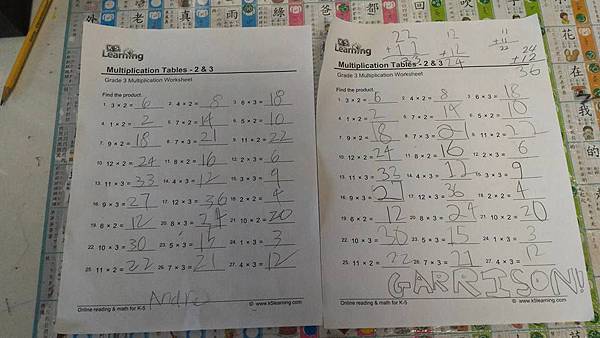 外 老 真 雨 綠 爸
K5 Learning
Multiplication Tables - 2 & 3
Grade 3 Multiplication Worksheet
Find the product.
1. 3 × 2 = 6 2. 4 × 2 = 8 3. 6 × 3 = 18
4. 1 × 2 = 2 5. 7 × 2 = 14 6. 5 × 2 = 10
7. 9 × 2 = 18 8. 7 × 3 = 21 9. 11 × 2 = 22
10. 12 × 2 = 24 11. 8 × 2 = 16 12. 2 × 3 = 6
13. 11 × 3 = 33 14. 4 × 3 = 12 15. 3 × 3 = 9
16. 9 × 3 = 27 17. 12 × 3 = 36 18. 2 × 2 = 4
19. 6 × 2 = 12 20. 8 × 3 = 24 21. 10 × 2 = 20
22. 10 × 3 = 30 23. 5 × 3 = 15 24. 1 × 3 = 3
25. 11 × 2 = 22 26. 7 × 3 = 21 27. 4 × 3 = 12
Online reading & math for K-5 © www.k5learning.com
22 12 11
+ 11 + 12 + 11
33 24 22
24
+ 12
36
Learning
Multiplication Tables - 2 & 3
Grade 3 Multiplication Worksheet
Find the product.
1. 3 × 2 = 6 2. 4 × 2 = 8 3. 6 × 3 = 18
4. 1 × 2 = 2 5. 7 × 2 = 14 6. 5 × 2 = 10
7. 9 × 2 = 18 8. 7 × 3 = 21 9. 11 × 2 = 22
10. 12 × 2 = 24 11. 8 × 2 = 16 12. 2 × 3 = 6
13. 11 × 3 = 33 14. 4 × 3 = 12 15. 3 × 3 = 9
16. 9 × 3 = 27 17. 12 × 3 = 36 18. 2 × 2 = 4
19. 6 × 2 = 12 20. 8 × 3 = 24 21. 10 × 2 = 20
22. 10 × 3 = 30 23. 5 × 3 = 15 24. 1 × 3 = 3
25. 11 × 2 = 22 26. 7 × 3 = 21 27. 4 × 3 = 12
GARRISON!
Online reading & math for K-5 © www.k5learning.com
花
我
的